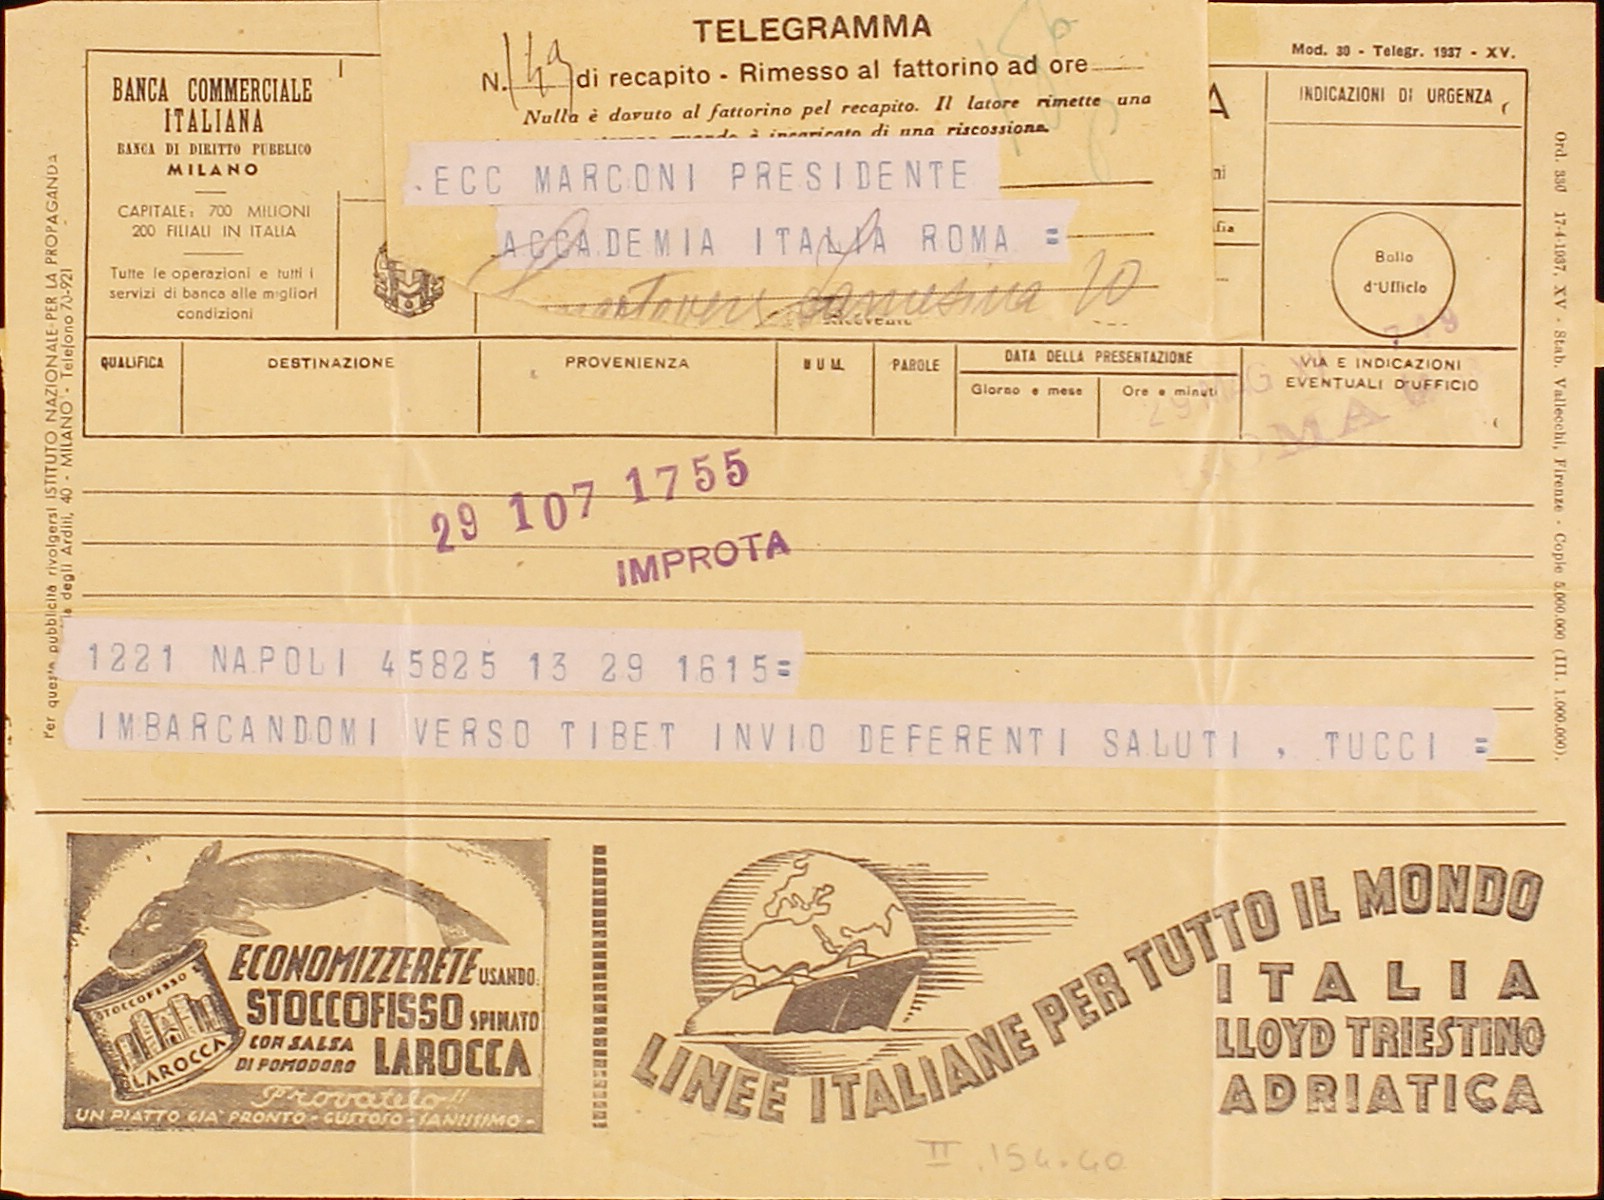 TELEGRAMMA
Mod. 30 - Telegr. 1937 - XV.
N. 149 di recapito - Rimesso al fattorino ad ore
Nulla è dovuto al fattorino pel recapito. Il latore rimette una
quando è incaricato di una riscossione.
BANCA COMMERCIALE
ITALIANA
BANCA DI DIRITTO PUBBLICO
MILANO
CAPITALE: 700 MILIONI
200 FILIALI IN ITALIA
Tutte le operazioni e tutti i
servizi di banca alle migliori
condizioni
A
INDICAZIONI DI URGENZA
ECC MARCONI PRESIDENTE
ACCADEMIA ITALIA ROMA =
Bollo
d'Ufficio
QUALIFICA
DESTINAZIONE
PROVENIENZA
NUM.
PAROLE
DATA DELLA PRESENTAZIONE
Giorno e mese
Ore e minuti
VIA E INDICAZIONI
EVENTUALI D'UFFICIO
29 MAG
ROMA
29 107 1755
IMPROTA
1221 NAPOLI 45825 13 29 1615=
IMBARCANDOMI VERSO TIBET INVIO DEFERENTI SALUTI , TUCCI =
Per questa pubblicità rivolgersi ISTITUTO NAZIONALE PER LA PROPAGANDA
degli Arditi, 40 - MILANO - Telefono 70-921
Ord. 330 17-4-1937, XV - Stab. Vallecchi, Firenze - Copie 5.000.000 (III. 1.000.000).
STOCCOFISSO
LAROCCA
ECONOMIZZERETE USANDO:
STOCCOFISSO SPINATO
CON SALSA
DI POMODORO LAROCCA
Provatelo!!
UN PIATTO GIA' PRONTO - GUSTOSO - SANISSIMO -
LINEE ITALIANE PER TUTTO IL MONDO
ITALIA
LLOYD TRIESTINO
ADRIATICA
II.154.40